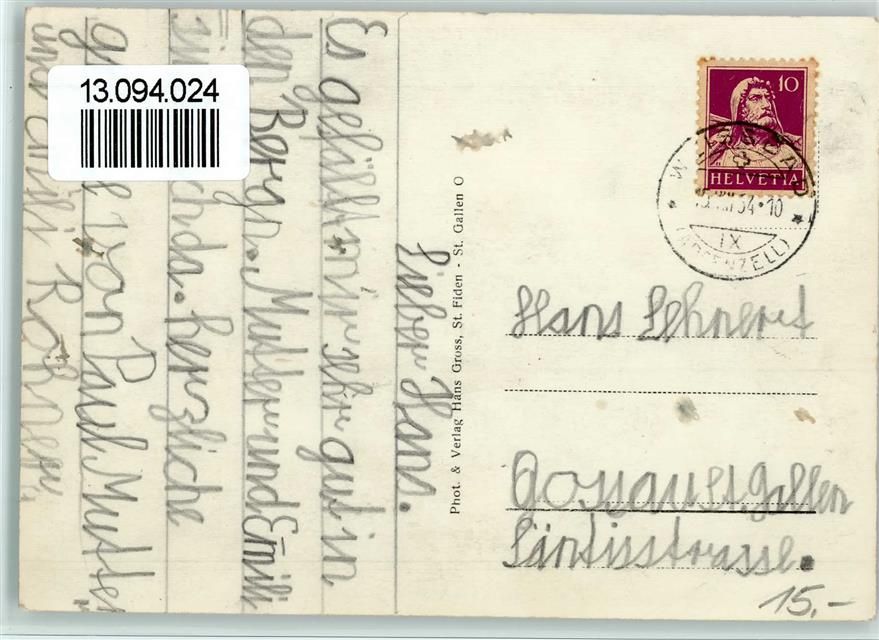 13.094.024
10
HELVETIA
WEISSBAD
34·10
IX
(APPENZELL)
Lieber Hans.
Es gefällt mir sehr gut in
den Berge. Mutter und Emili
sind auch da. herzliche
von Paul. Mutter
und
Phot. & Verlag Hans Gross, St. Fiden - St. Gallen O
Hans Lehnert
Gossau St. Gallen
Säntisstrasse.
15,-